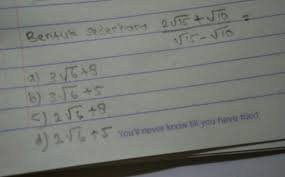 Bentuk sederhana 2√15 + √10 / √15 - √10 =
a) 3√6 + 8
b) 3√6 + 5
c) 2√6 + 8
d) 2√6 + 5
You'll never know till you have tried